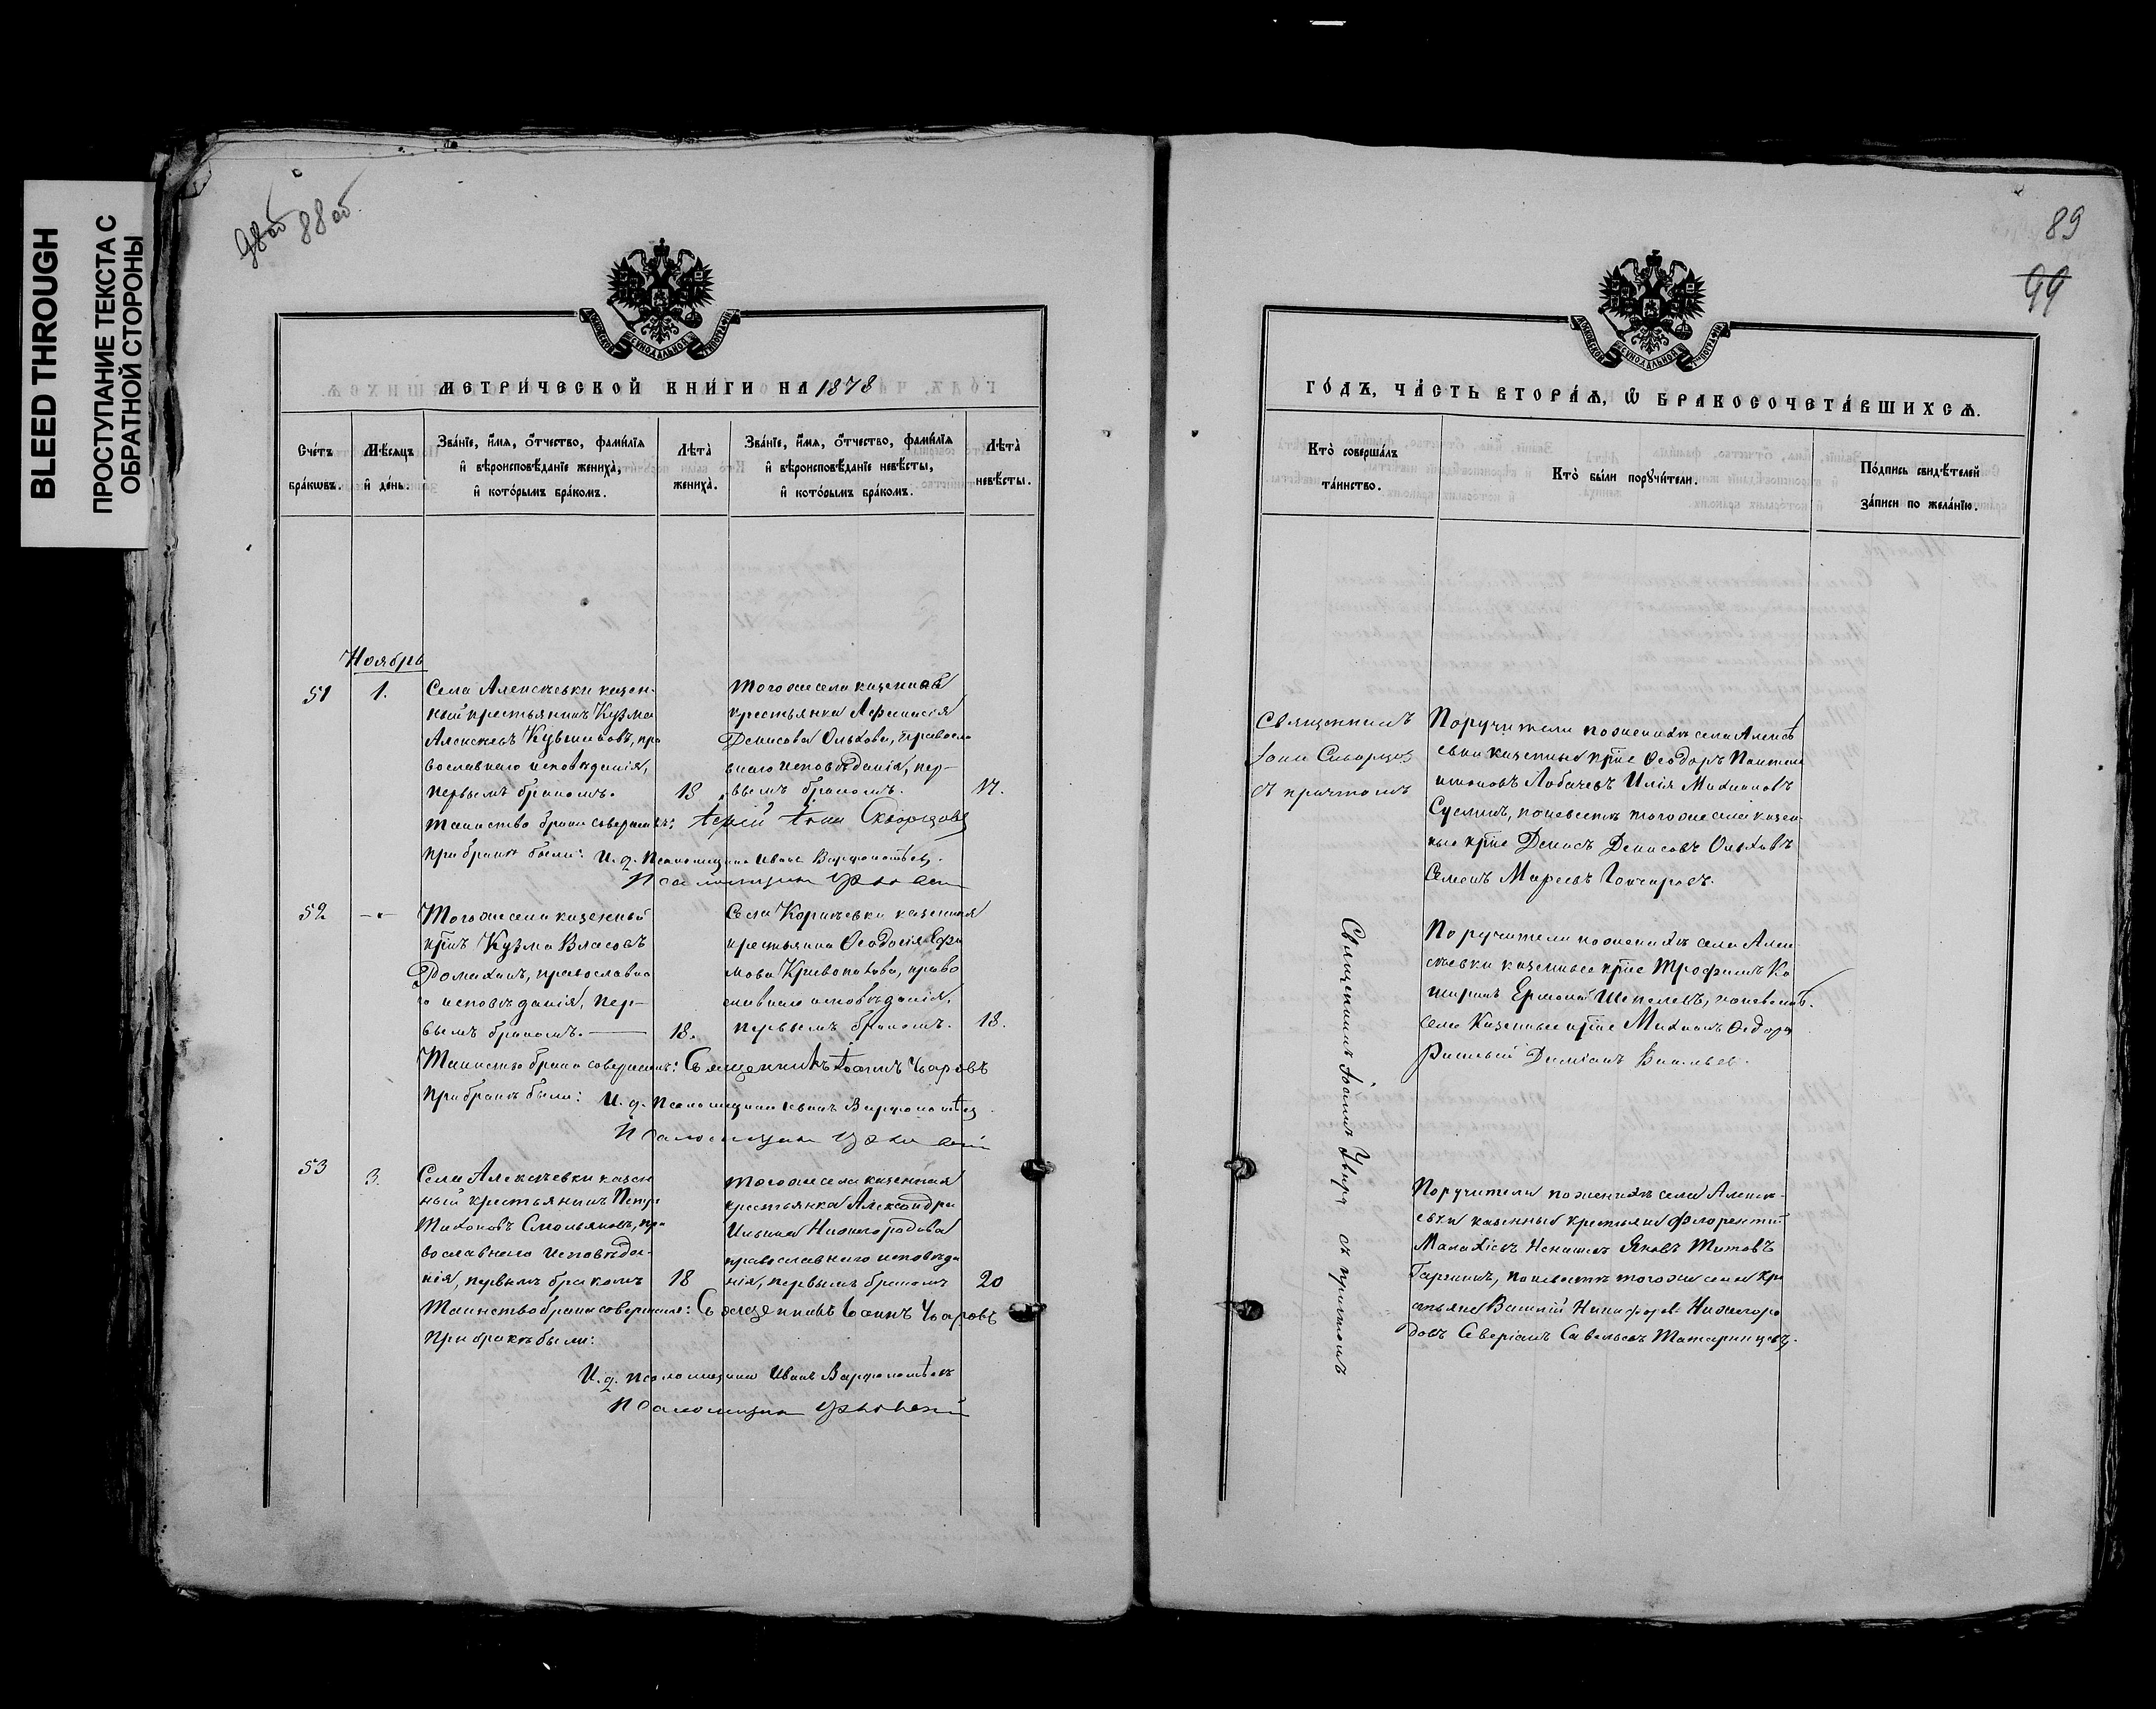 BLEED THROUGH
ПРОСТУПАНИЕ ТЕКСТА С
ОБРАТНОЙ СТОРОНЫ
98об 88об
МЕТРИ́ЧЕСКОЙ КНИ́ГИ НА 1878
Сче́тъ
бра́кѡвъ.
Мѣ́сяцъ
и҆ де́нь.
Зва́нїе, и҆́мя, ѻ҆́тчество, фами́лїя
и҆ вѣроисповѣ́данїе жениха̀,
и҆ кото́рымъ бра́комъ.
Лѣта̀
жениха̀.
Зва́нїе, и҆́мя, ѻ҆́тчество, фами́лїя
и҆ вѣроисповѣ́данїе невѣ́сты,
и҆ кото́рымъ бра́комъ.
Лѣта̀
невѣ́сты.
Ноябрь
51
1.
Села Алексѣевки казен-
ный крестьянинъ Кузма
Алексѣевъ Кувшиновъ, пра
вославнаго исповѣданія,
первымъ бракомъ.
18
Тогоже села казенная
крестьянка Афанасія
Денисова Ольхова, правосла
внаго исповѣданія, пер-
вымъ бракомъ.
17.
Таинство брака совершалъ: Іерей Іона Скворцовъ
При бракѣ были: И. д. Псаломщика Иванъ Варфоломѣевъ.
Псаломщикъ
52
Тогоже села казенный
кр-нъ Кузма Власовъ
Домахинъ, православна
го исповѣданія, пер-
вымъ бракомъ.
18.
Села Коричевки казенная
крестьянка Ѳеодосія Ефи
мова Кривопалова, право
славнаго исповѣданія,
первымъ бракомъ.
18.
Таинство брака совершалъ: Священникъ Іоаннъ Уваровъ
При бракѣ были: И. д. Псаломщика Иванъ Варфоломѣевъ
Псаломщикъ
53
3.
Села Алексѣевки казен
ный крестьянинъ Петръ
Тихоновъ Смольяновъ, пра
вославнаго исповѣда-
нія, первымъ бракомъ
18
Тогоже села казенная
крестьянка Александра
Ильина Нижегородова
православнаго исповѣда
нія, первымъ бракомъ
20
Таинство брака совершалъ: Священникъ Іоаннъ Уваровъ
При бракѣ были:
И. д. псаломщика Иванъ Варфоломѣевъ
Псаломщикъ
89
99
ГО́ДЪ, ЧА́СТЬ ВТОРА́Ѧ, Ѡ҆ БРАКОСОЧЕТА́ВШИХСѦ.
Кто̀ соверша́лъ
та́инство.
Кто̀ бы́ли порꙋчи́тели.
По́дпись свидѣ́телей
за́писи по жела́нїю.
Священникъ
Іона Скворцов
съ причтомъ
Поручители по женихѣ села Алексѣ
евки казенные кр-не Ѳеодоръ Пантели
имоновъ Лобачевъ Илія Михаиловъ
Суслинъ, по невестѣ тогоже села казен-
ные кр-не Денисъ Денисовъ Ольховъ
Семенъ Марковъ Гончаровъ.
Священникъ Іоаннъ Уваров съ причтомъ
Поручители по женихѣ села Алек
сѣевки казенные кр-не Трофимъ Ка
ширинъ Ермолай Шепелевъ, по невестѣ.
села казенные кр-не Михаилъ Ѳедоръ
Даміанъ Васильев.
Поручители по женихѣ села Алексѣ-
евки казенные крестьяне Флорентій
Малахіевъ Яковъ Титовъ
Гаршинъ, по невестѣ тогоже села кре
стьяне Василій Никифоров Нижегоро
довъ Северіанъ Савельевъ Татаринцевъ.